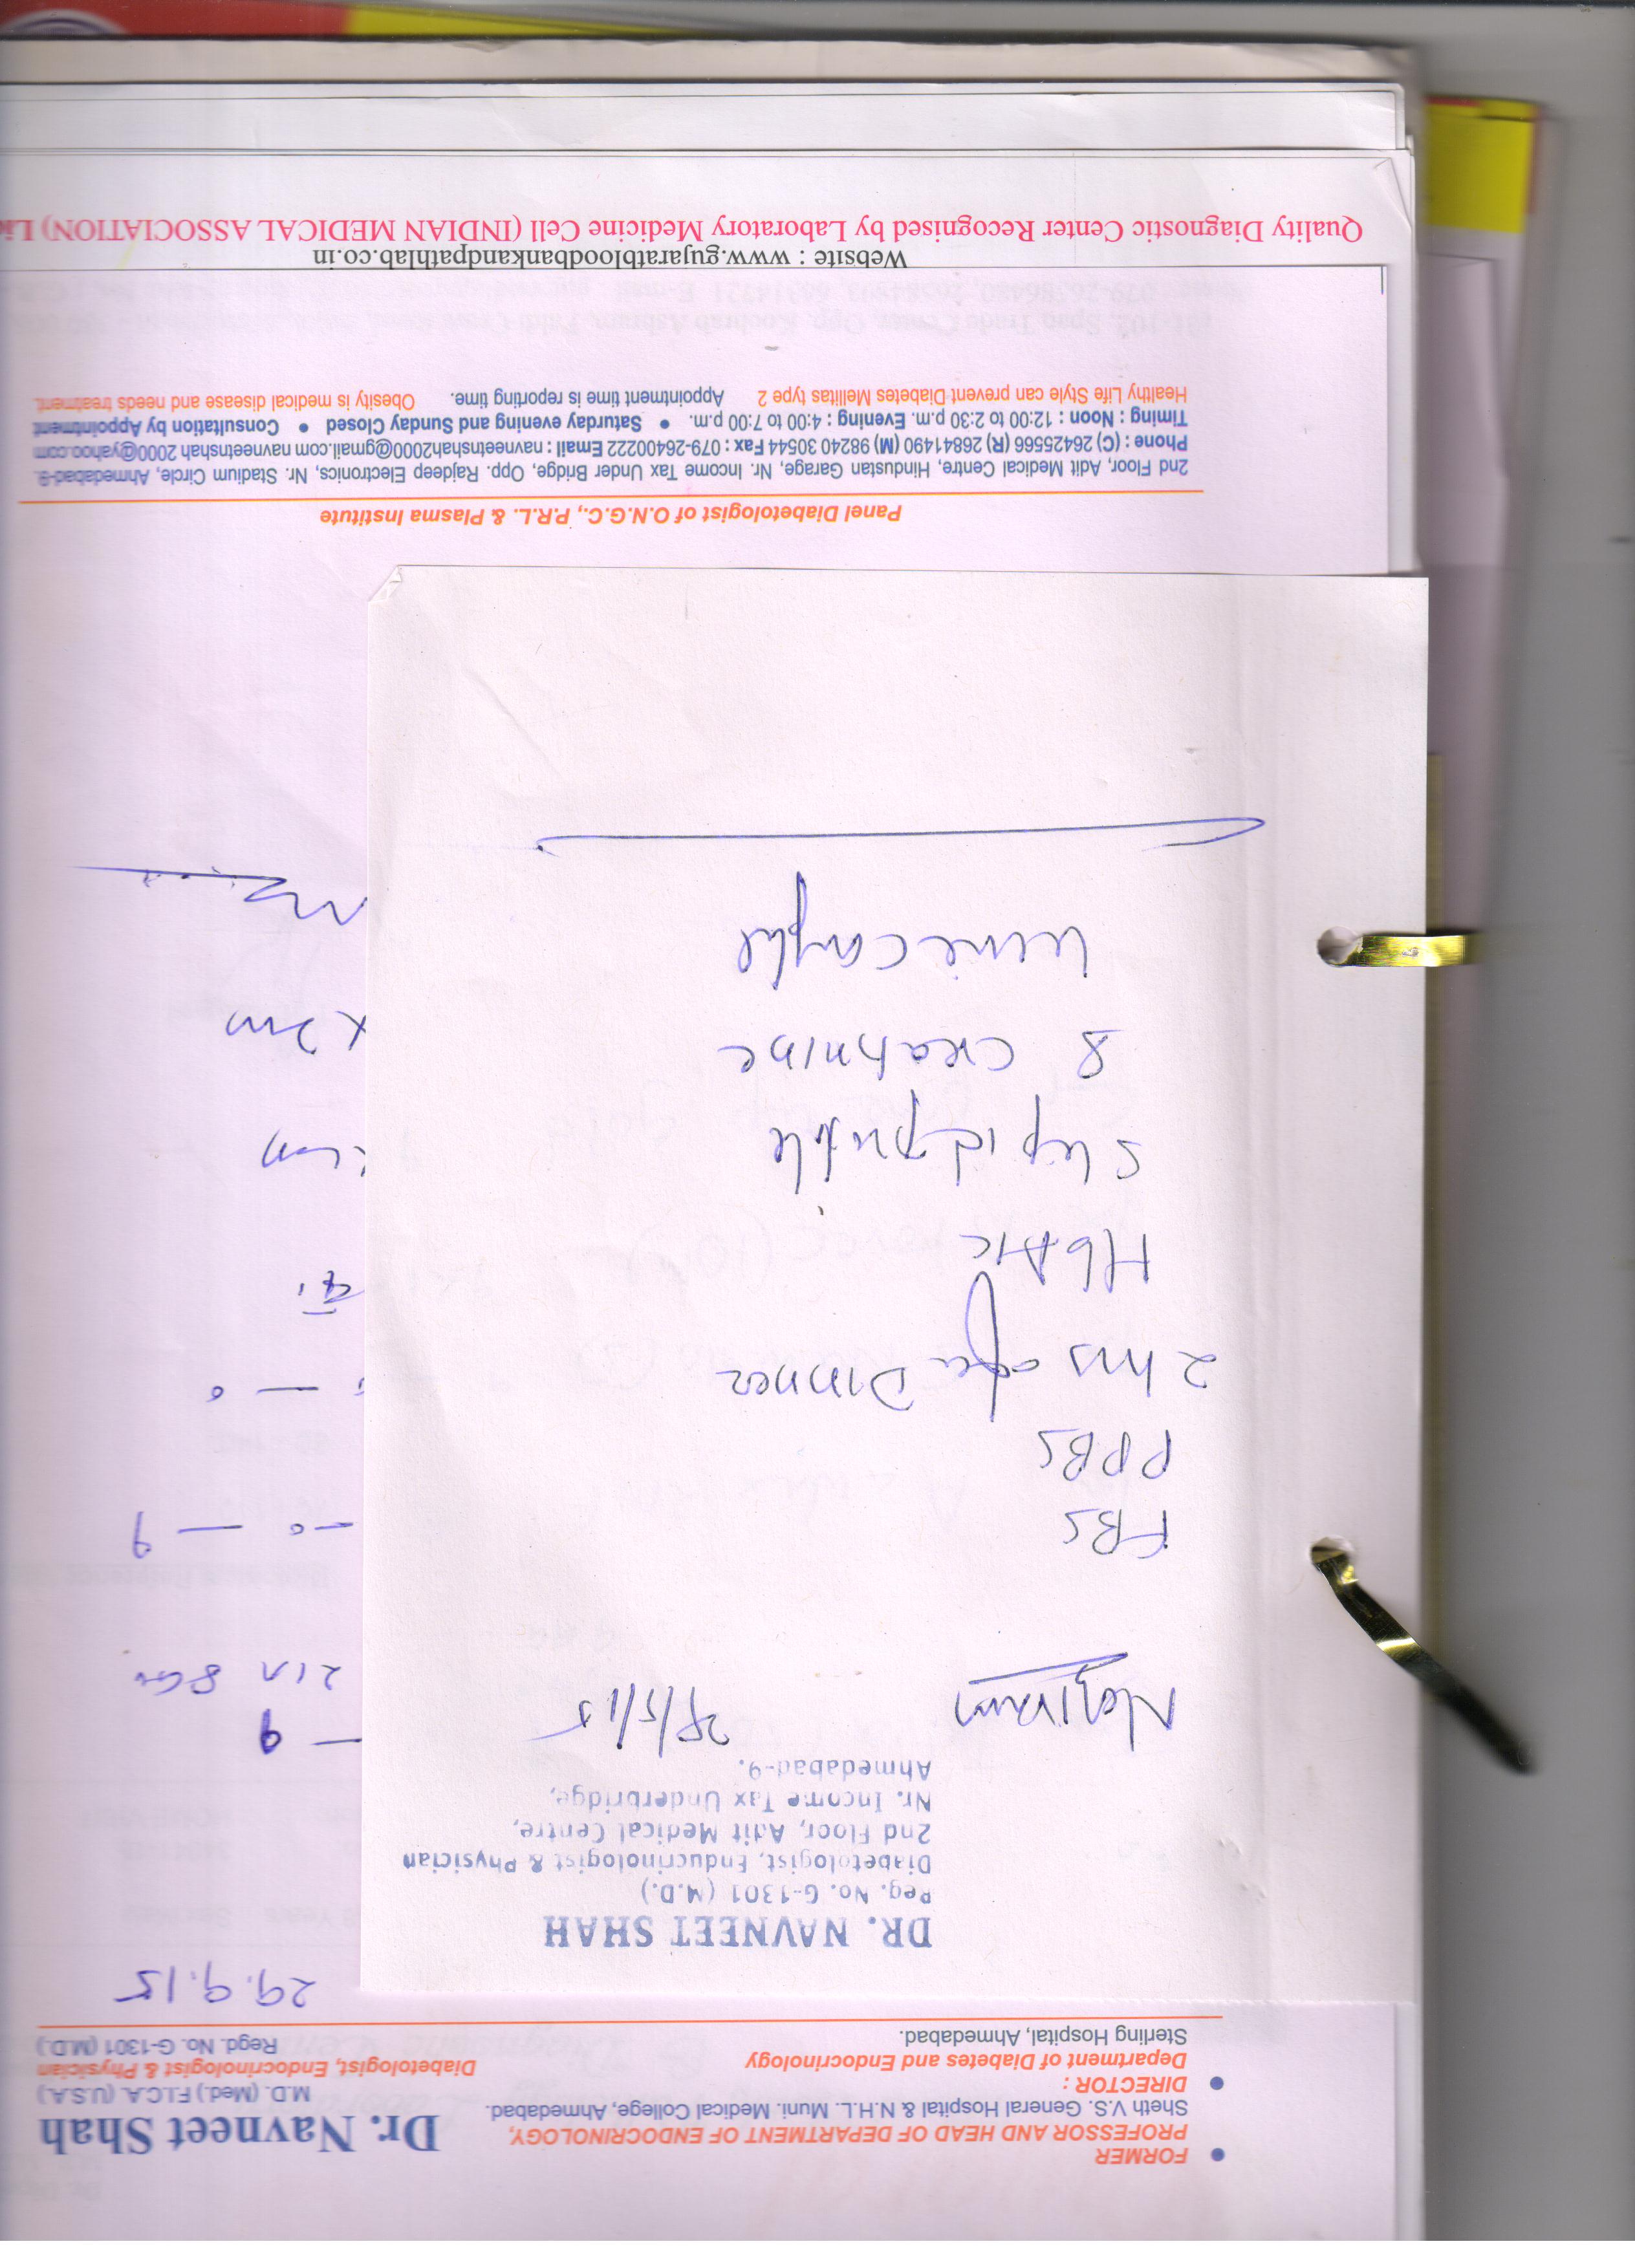 FORMER
PROFESSOR AND HEAD OF DEPARTMENT OF ENDOCRINOLOGY,
Sheth V.S. General Hospital & N.H.L. Muni. Medical College, Ahmedabad.
DIRECTOR :
Department of Diabetes and Endocrinology
Sterling Hospital, Ahmedabad.
Dr. Navneet Shah
M.D. (Med.) F.I.C.A. (U.S.A.)
Diabetologist, Endocrinologist & Physician
Regd. No. G-1301 (M.D.)
29.9.15
DR. NAVNEET SHAH
Reg. No. G-1301 (M.D.)
Diabetologist, Enducrinologist & Physician
2nd Floor, Adit Medical Centre,
Nr. Income Tax Underbridge,
Ahmedabad-9.
FBS
PPBS
2 hrs after Dinner
HbA1c
S lipid profile
S creatnine
Panel Diabetologist of O.N.G.C., P.R.L. & Plasma Institute
2nd Floor, Adit Medical Centre, Hindustan Garage, Nr. Income Tax Under Bridge, Opp. Rajdeep Electronics, Nr. Stadium Circle, Ahmedabad-9.
Phone : (C) 26425566 (R) 26841490 (M) 98240 30544 Fax : 079-26400222 Email : navneetshah2000@gmail.com navneetshah 2000@yahoo.com
Timing : Noon : 12:00 to 2:30 p.m. Evening : 4:00 to 7:00 p.m. • Saturday evening and Sunday Closed • Consultation by Appointment
Healthy Life Style can prevent Diabetes Mellitas type 2 Appointment time is reporting time. Obesity is medical disease and needs treatment.
Website : www.gujaratbloodbankandpathlab.co.in
Quality Diagnostic Center Recognised by Laboratory Medicine Cell (INDIAN MEDICAL ASSOCIATION)